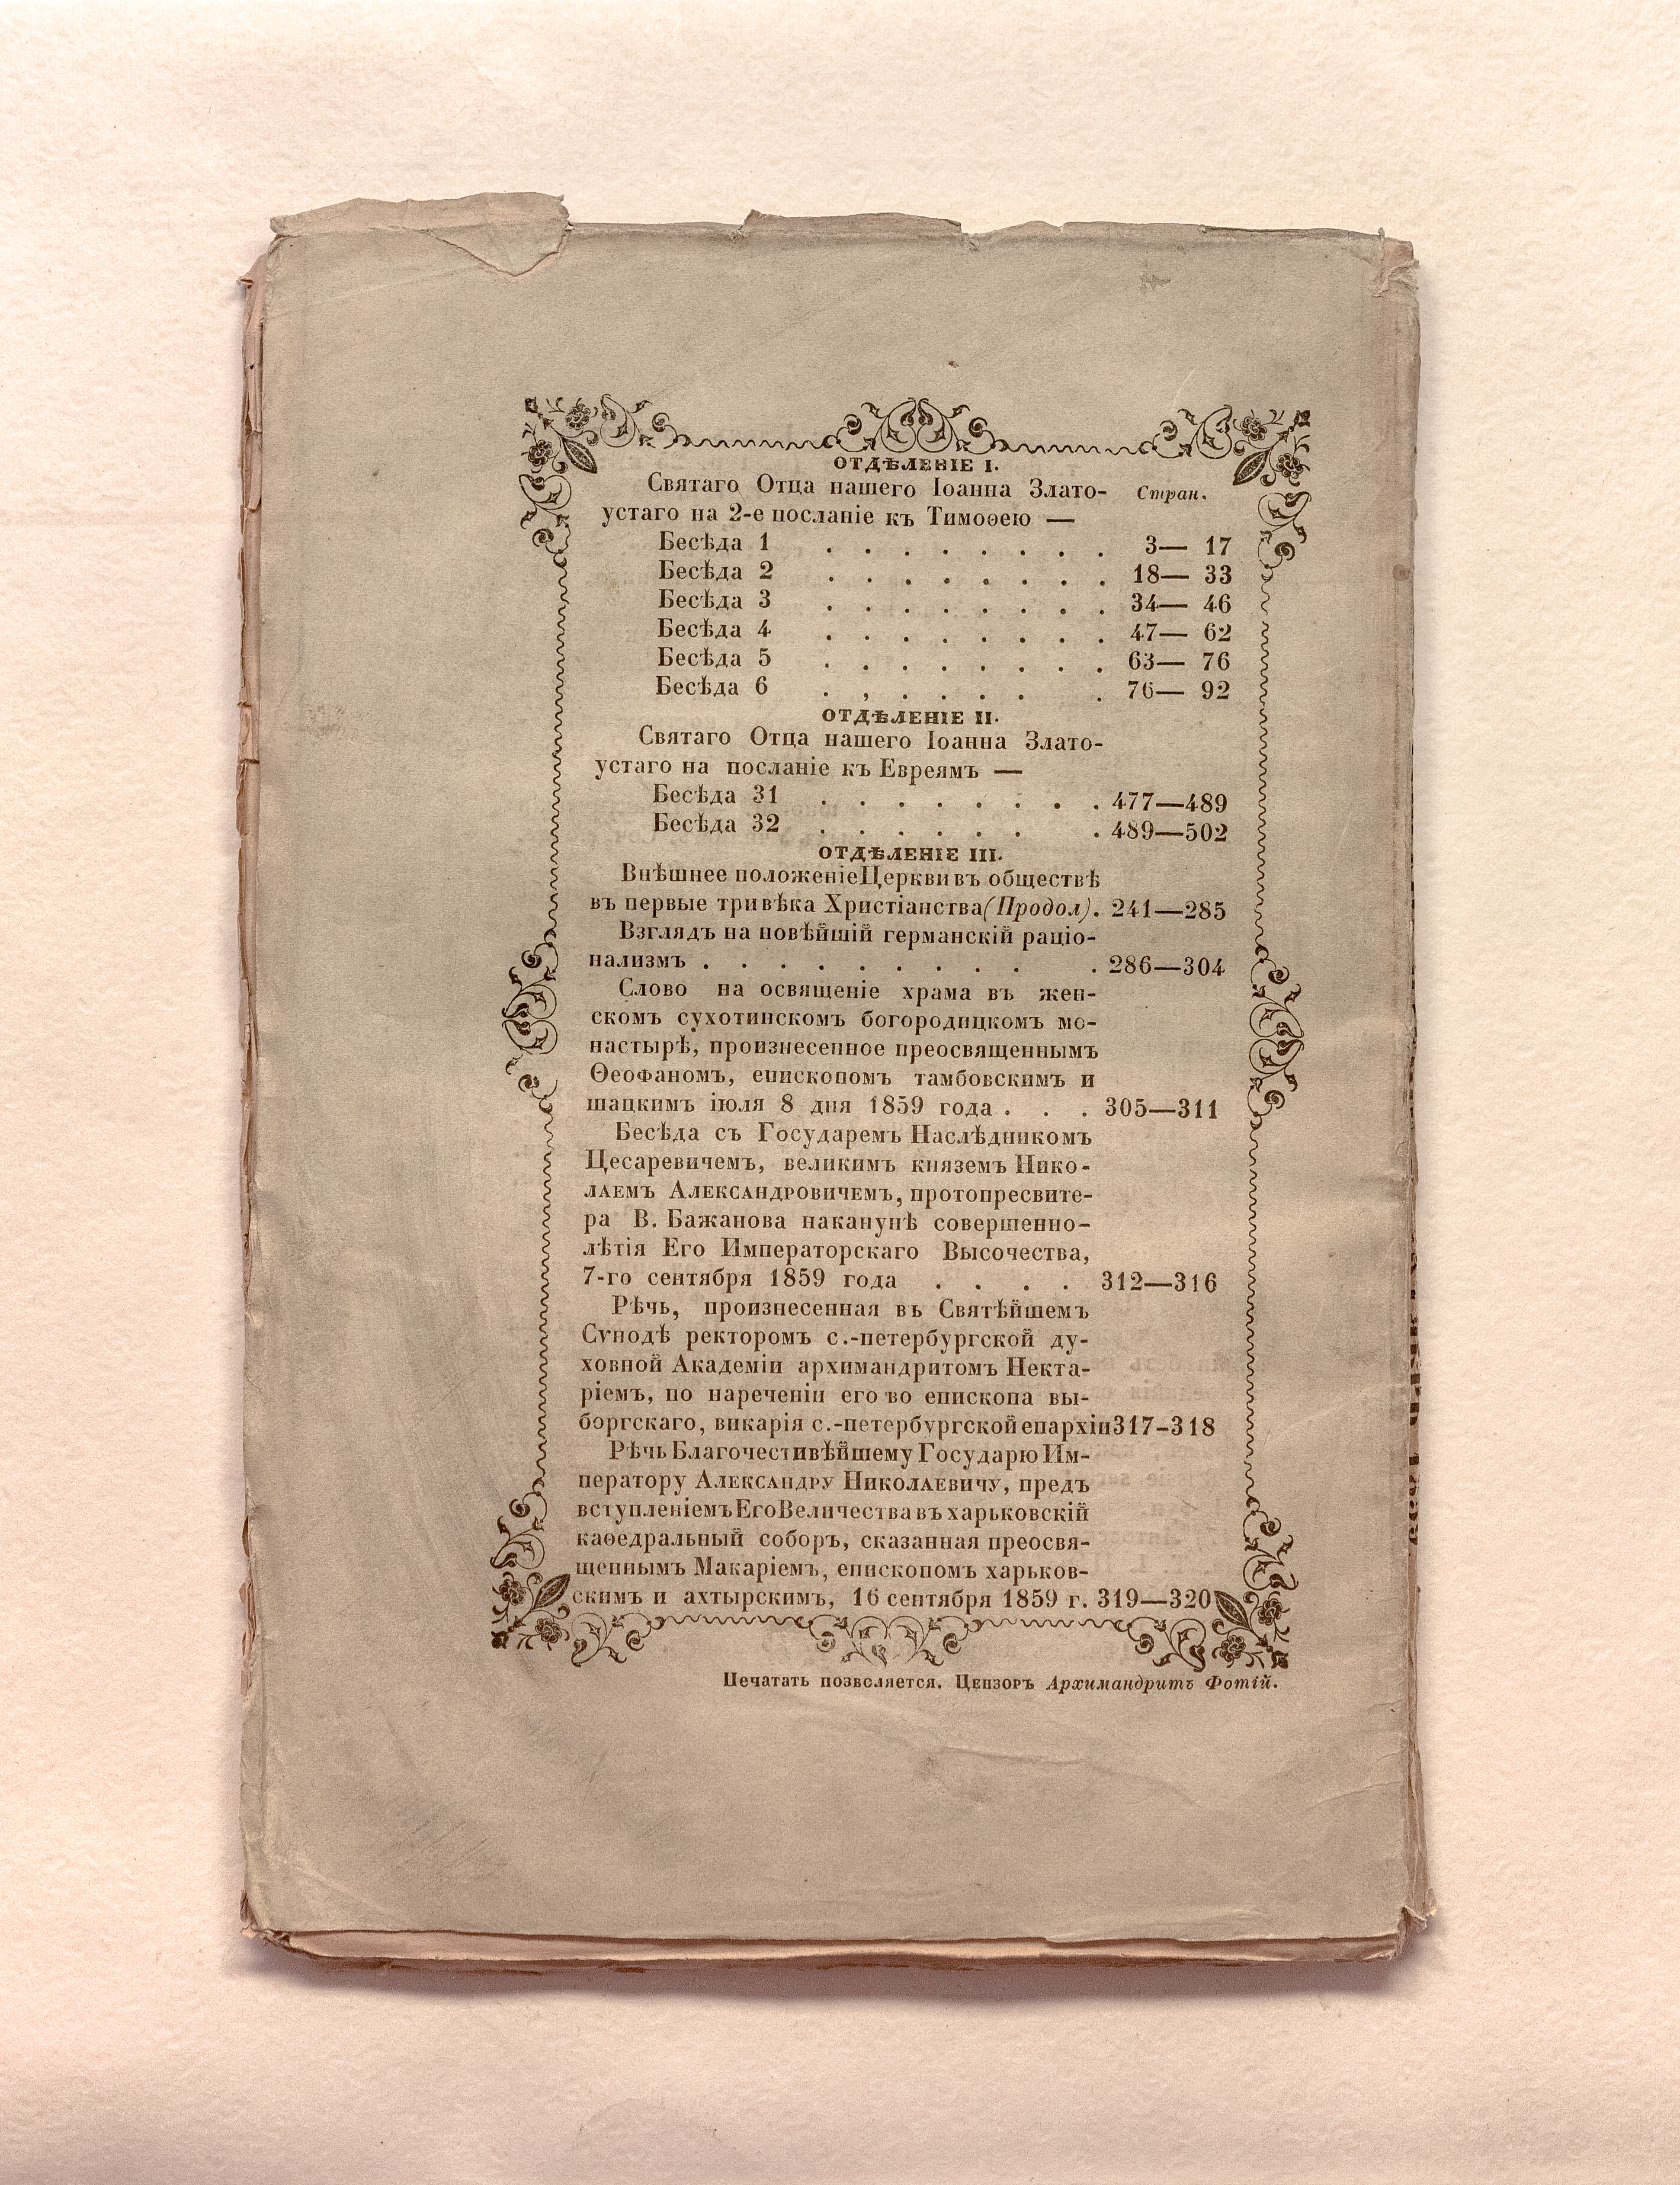 ОТДѢЛЕНІЕ I.
Святаго Отца нашего Іоанна Злато- Стран.
устаго на 2-е посланіе къ Тимоѳею —
Бесѣда 1 . . . . . . . . 3— 17
Бесѣда 2 . . . . . . . . 18— 33
Бесѣда 3 . . . . . . . . 34— 46
Бесѣда 4 . . . . . . . . 47— 62
Бесѣда 5 . . . . . . . . 63— 76
Бесѣда 6 . , . . . . . 76— 92
ОТДѢЛЕНІЕ II.
Святаго Отца нашего Іоанна Злато-
устаго на посланіе къ Евреямъ —
Бесѣда 31 . . . . . . . . 477—489
Бесѣда 32 . . . . . . . 489—502
ОТДѢЛЕНІЕ III.
Внѣшнее положеніе Церкви въ обществѣ
въ первые три вѣка Христіанства (Продол). 241—285
Взглядъ на новѣйшій германскій раціо-
нализмъ . . . . . . . . . . 286—304
Слово на освященіе храма въ жен-
скомъ сухотинскомъ богородицкомъ мо-
настырѣ, произнесенное преосвященнымъ
Ѳеофаномъ, епископомъ тамбовскимъ и
шацкимъ іюля 8 дня 1859 года . . . 305—311
Бесѣда съ Государемъ Наслѣдникомъ
Цесаревичемъ, великимъ княземъ Нико-
лаемъ Александровичемъ, протопресвите-
ра В. Бажанова наканунѣ совершенно-
лѣтія Его Императорскаго Высочества,
7-го сентября 1859 года . . . . 312—316
Рѣчь, произнесенная въ Святѣйшемъ
Сѵнодѣ ректоромъ с.-петербургской ду-
ховной Академіи архимандритомъ Некта-
ріемъ, по нареченіи его во епископа вы-
боргскаго, викарія с.-петербургской епархіи 317-318
Рѣчь Благочестивѣйшему Государю Им-
ператору Александру Николаевичу, предъ
вступленіемъ Его Величества въ харьковскій
каѳедральный соборъ, сказанная преосвя-
щеннымъ Макаріемъ, епископомъ харьков-
скимъ и ахтырскимъ, 16 сентября 1859 г. 319—320
Печатать позволяется. Цензоръ Архимандритъ Фотій.